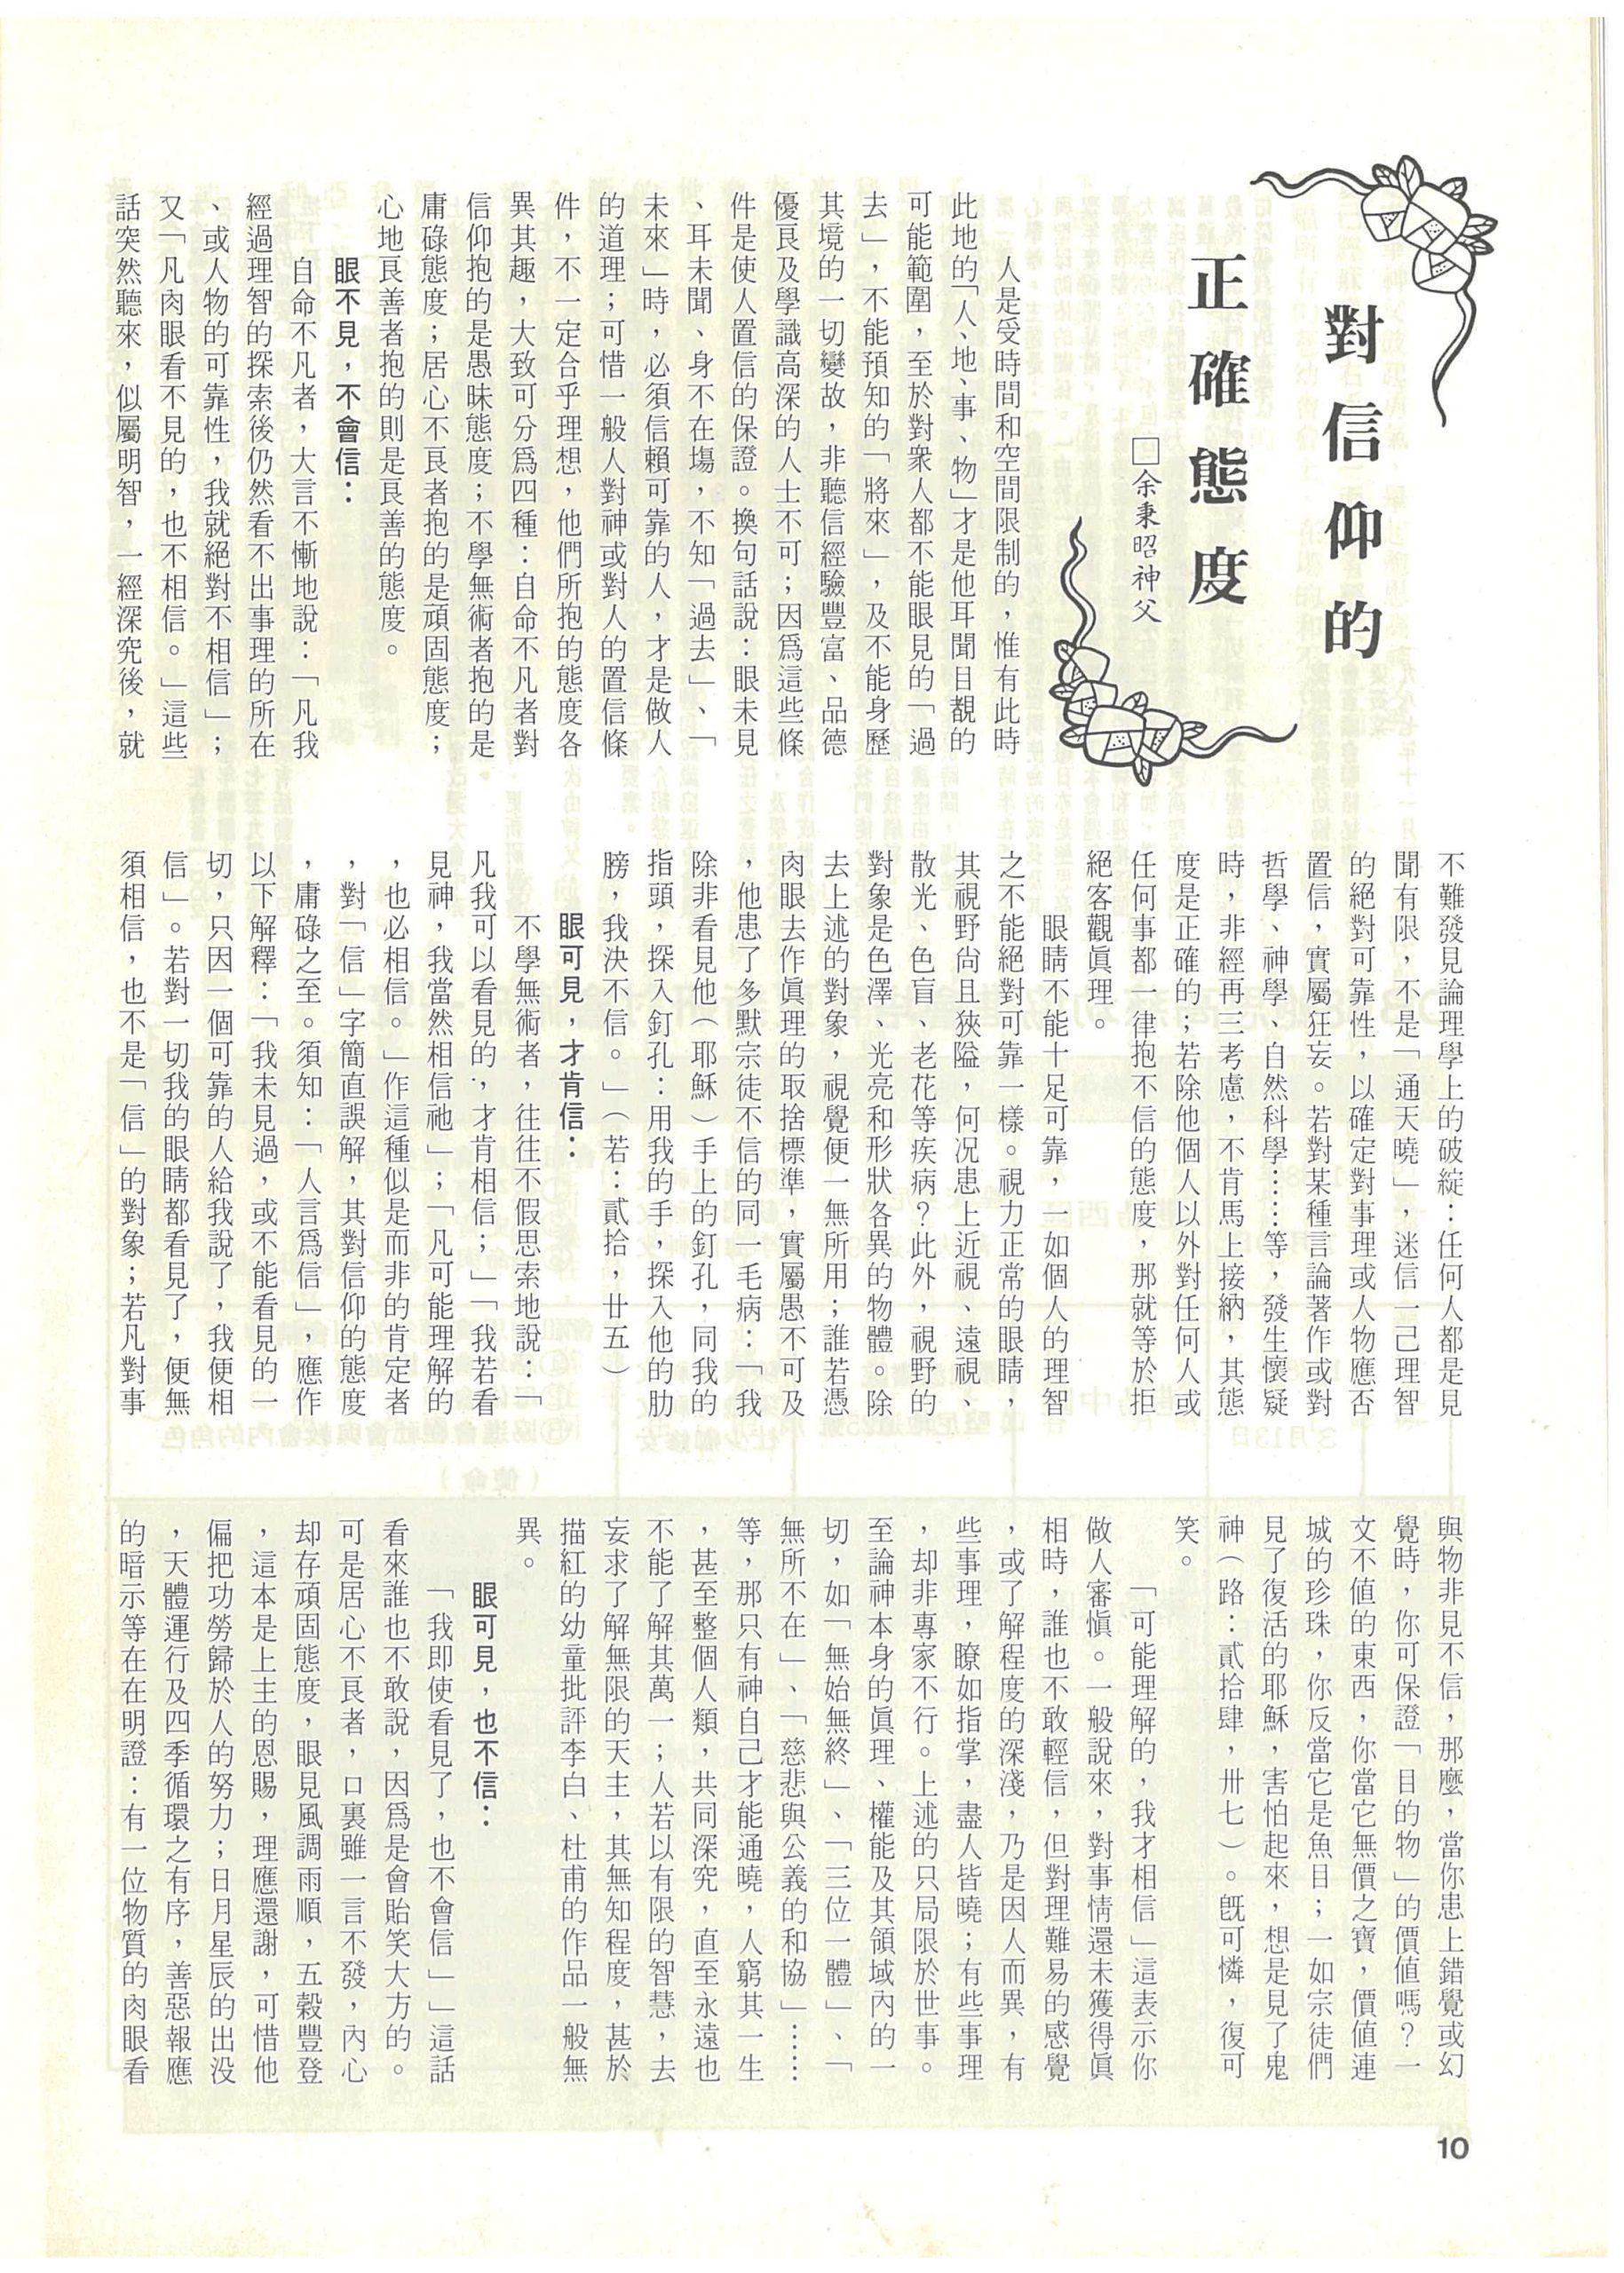 對信仰的
正確態度
□余秉昭神父
人是受時間和空間限制的，惟有此時
此地的「人、地、事、物」才是他耳聞目覩的
可能範圍，至於對衆人都不能眼見的「過
去」，不能預知的「將來」，及不能身歷
其境的一切變故，非聽信經驗豐富、品德
優良及學識高深的人士不可；因爲這些條
件是使人置信的保證。換句話說：眼未見
、耳未聞、身不在塲，不知「過去」、「
未來」時，必須信賴可靠的人，才是做人
的道理；可惜一般人對神或對人的置信條
件，不一定合乎理想，他們所抱的態度各
異其趣，大致可分爲四種：自命不凡者對
信仰抱的是愚昧態度；不學無術者抱的是
庸碌態度；居心不良者抱的是頑固態度；
心地良善者抱的則是良善的態度。
眼不見，不會信：
自命不凡者，大言不慚地說：「凡我
經過理智的探索後仍然看不出事理的所在
、或人物的可靠性，我就絕對不相信」；
又「凡肉眼看不見的，也不相信。」這些
話突然聽來，似屬明智，一經深究後，就
不難發見論理學上的破綻：任何人都是見
聞有限，不是「通天曉」，迷信一己理智
的絕對可靠性，以確定對事理或人物應否
置信，實屬狂妄。若對某種言論著作或對
哲學、神學、自然科學……等，發生懷疑
時，非經再三考慮，不肯馬上接納，其態
度是正確的；若除他個人以外對任何人或
任何事都一律抱不信的態度，那就等於拒
絕客觀眞理。
眼睛不能十足可靠，一如個人的理智
之不能絕對可靠一樣。視力正常的眼睛，
其視野尙且狹隘，何况患上近視、遠視、
散光、色盲、老花等疾病？此外，視野的
對象是色澤、光亮和形狀各異的物體。除
去上述的對象，視覺便一無所用；誰若憑
肉眼去作眞理的取捨標準，實屬愚不可及
，他患了多默宗徒不信的同一毛病：「我
除非看見他（耶穌）手上的釘孔，同我的
指頭，探入釘孔：用我的手，探入他的肋
膀，我決不信。」（若：貳拾，廿五）
眼可見，才肯信：
不學無術者，往往不假思索地說：「
凡我可以看見的，才肯相信；」「我若看
見神，我當然相信祂」；「凡可能理解的
，也必相信。」作這種似是而非的肯定者
，對「信」字簡直誤解，其對信仰的態度
，庸碌之至。須知：「人言爲信」，應作
以下解釋：「我未見過，或不能看見的一
切，只因一個可靠的人給我說了，我便相
信」。若對一切我的眼睛都看見了，便無
須相信，也不是「信」的對象；若凡對事
與物非見不信，那麼，當你患上錯覺或幻
覺時，你可保證「目的物」的價値嗎？一
文不値的東西，你當它無價之寶，價値連
城的珍珠，你反當它是魚目；一如宗徒們
見了復活的耶穌，害怕起來，想是見了鬼
神（路：貳拾肆，卅七）。旣可憐，復可
笑。
「可能理解的，我才相信」這表示你
做人審愼。一般說來，對事情還未獲得眞
相時，誰也不敢輕信，但對理難易的感覺
，或了解程度的深淺，乃是因人而異，有
些事理，瞭如指掌，盡人皆曉；有些事理
，却非專家不行。上述的只局限於世事。
至論神本身的眞理、權能及其領域內的一
切，如「無始無終」、「三位一體」、「
無所不在」、「慈悲與公義的和協」……
等，那只有神自己才能通曉，人窮其一生
，甚至整個人類，共同深究，直至永遠也
不能了解其萬一；人若以有限的智慧，去
妄求了解無限的天主，其無知程度，甚於
描紅的幼童批評李白、杜甫的作品一般無
異。
眼可見，也不信：
「我即使看見了，也不會信」」這話
看來誰也不敢說，因爲是會貽笑大方的。
可是居心不良者，口裏雖一言不發，內心
却存頑固態度，眼見風調雨順，五穀豐登
，這本是上主的恩賜，理應還謝，可惜他
偏把功勞歸於人的努力；日月星辰的出没
，天體運行及四季循環之有序，善惡報應
的暗示等在在明證：有一位物質的肉眼看
10